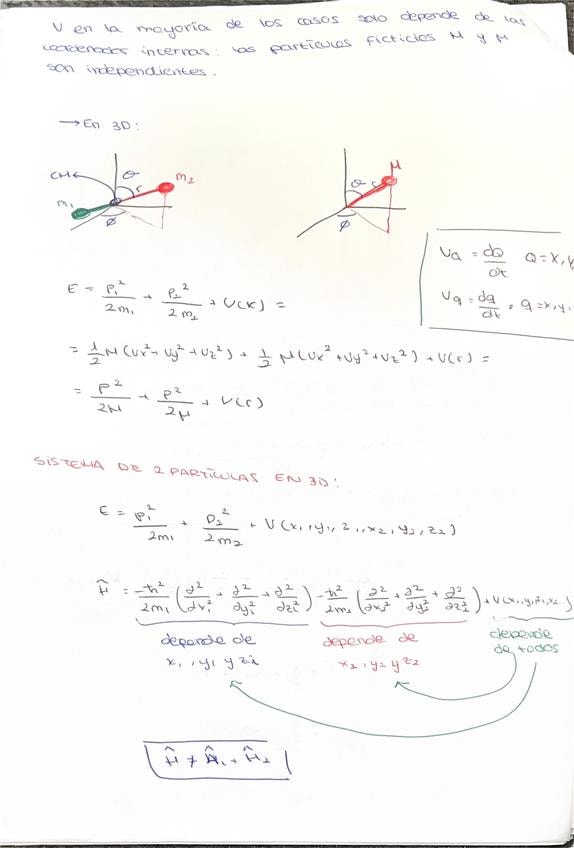 V en la mayoría de los casos solo depende de las
coordenadas internas: las partículas ficticias M y μ
son independientes.
→ En 3D:
CM θ r m₂
m₁ φ
μ
θ r
φ
V_Q = dQ/dt Q = X, Y
V_q = dq/dt q = x, y,
E = p₁²/2m₁ + p₂²/2m₂ + V(x) =
= 1/2 M (Vx² + Vy² + Vz²) + 1/2 μ (Vx² + Vy² + Vz²) + V(r) =
= P²/2M + p²/2μ + V(r)
SISTEMA DE 2 PARTÍCULAS EN 3D:
E = p₁²/2m₁ + p₂²/2m₂ + V(x₁, y₁, z₁, x₂, y₂, z₂)
Ĥ = -ħ²/2m₁ (∂²/∂x₁² + ∂²/∂y₁² + ∂²/∂z₁²) - ħ²/2m₂ (∂²/∂x₂² + ∂²/∂y₂² + ∂²/∂z₂²) + V(x₁, y₁, z₁, x₂
depende de depende de depende
x₁, y₁ y z₁ x₂, y₂ y z₂ de todos
Ĥ ≠ Ĥ₁ + Ĥ₂